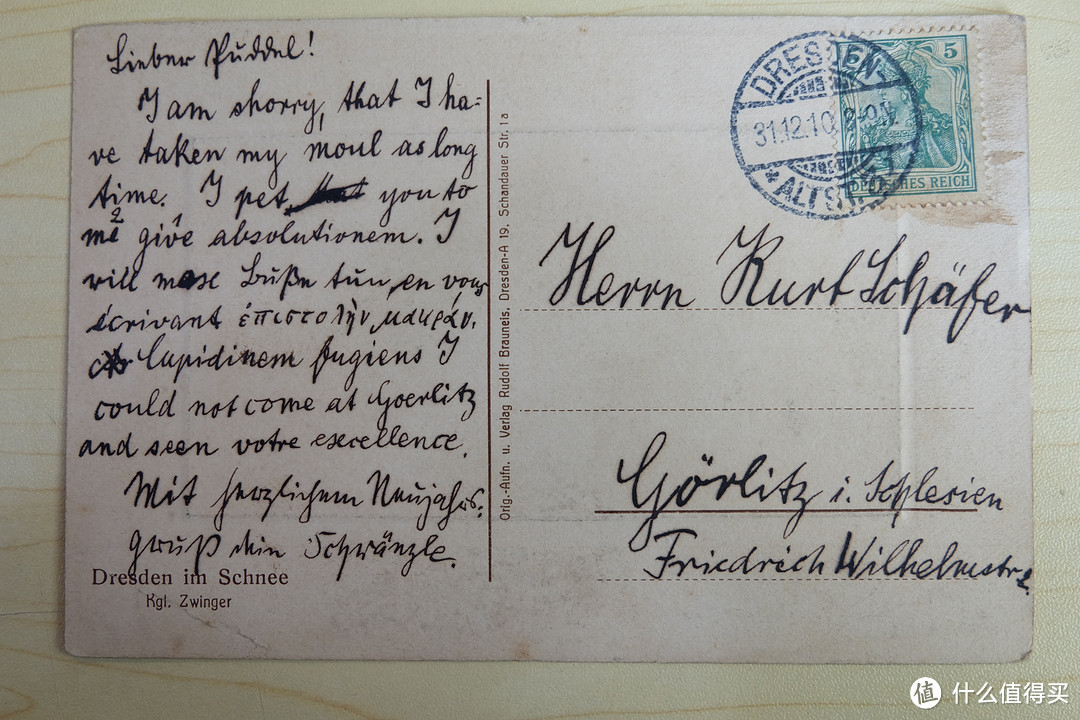 Lieber Puddel!
I am shorry, that I ha-
ve taken my moul as long
time. I pet you to
me give absolutionem. I
will Buße tun, en vous
écrivant ἐπιστολὴν μακράν.
Cupidinem fugiens I
could not come at Goerlitz
and seen votre excellence.
Mit herzlichem Neujahrs-
gruß dein Schwänzle.
Dresden im Schnee
Kgl. Zwinger
Orig.-Aufn. u. Verlag Rudolf Brauneis, Dresden-A 19, Schandauer Str. 1a
DRESDEN-
31.12.10
* ALTST.
5
DEUTSCHES REICH
Herrn Kurt Schäfer
Görlitz i. Schlesien
Friedrich Wilhelmstr.
值 什么值得买